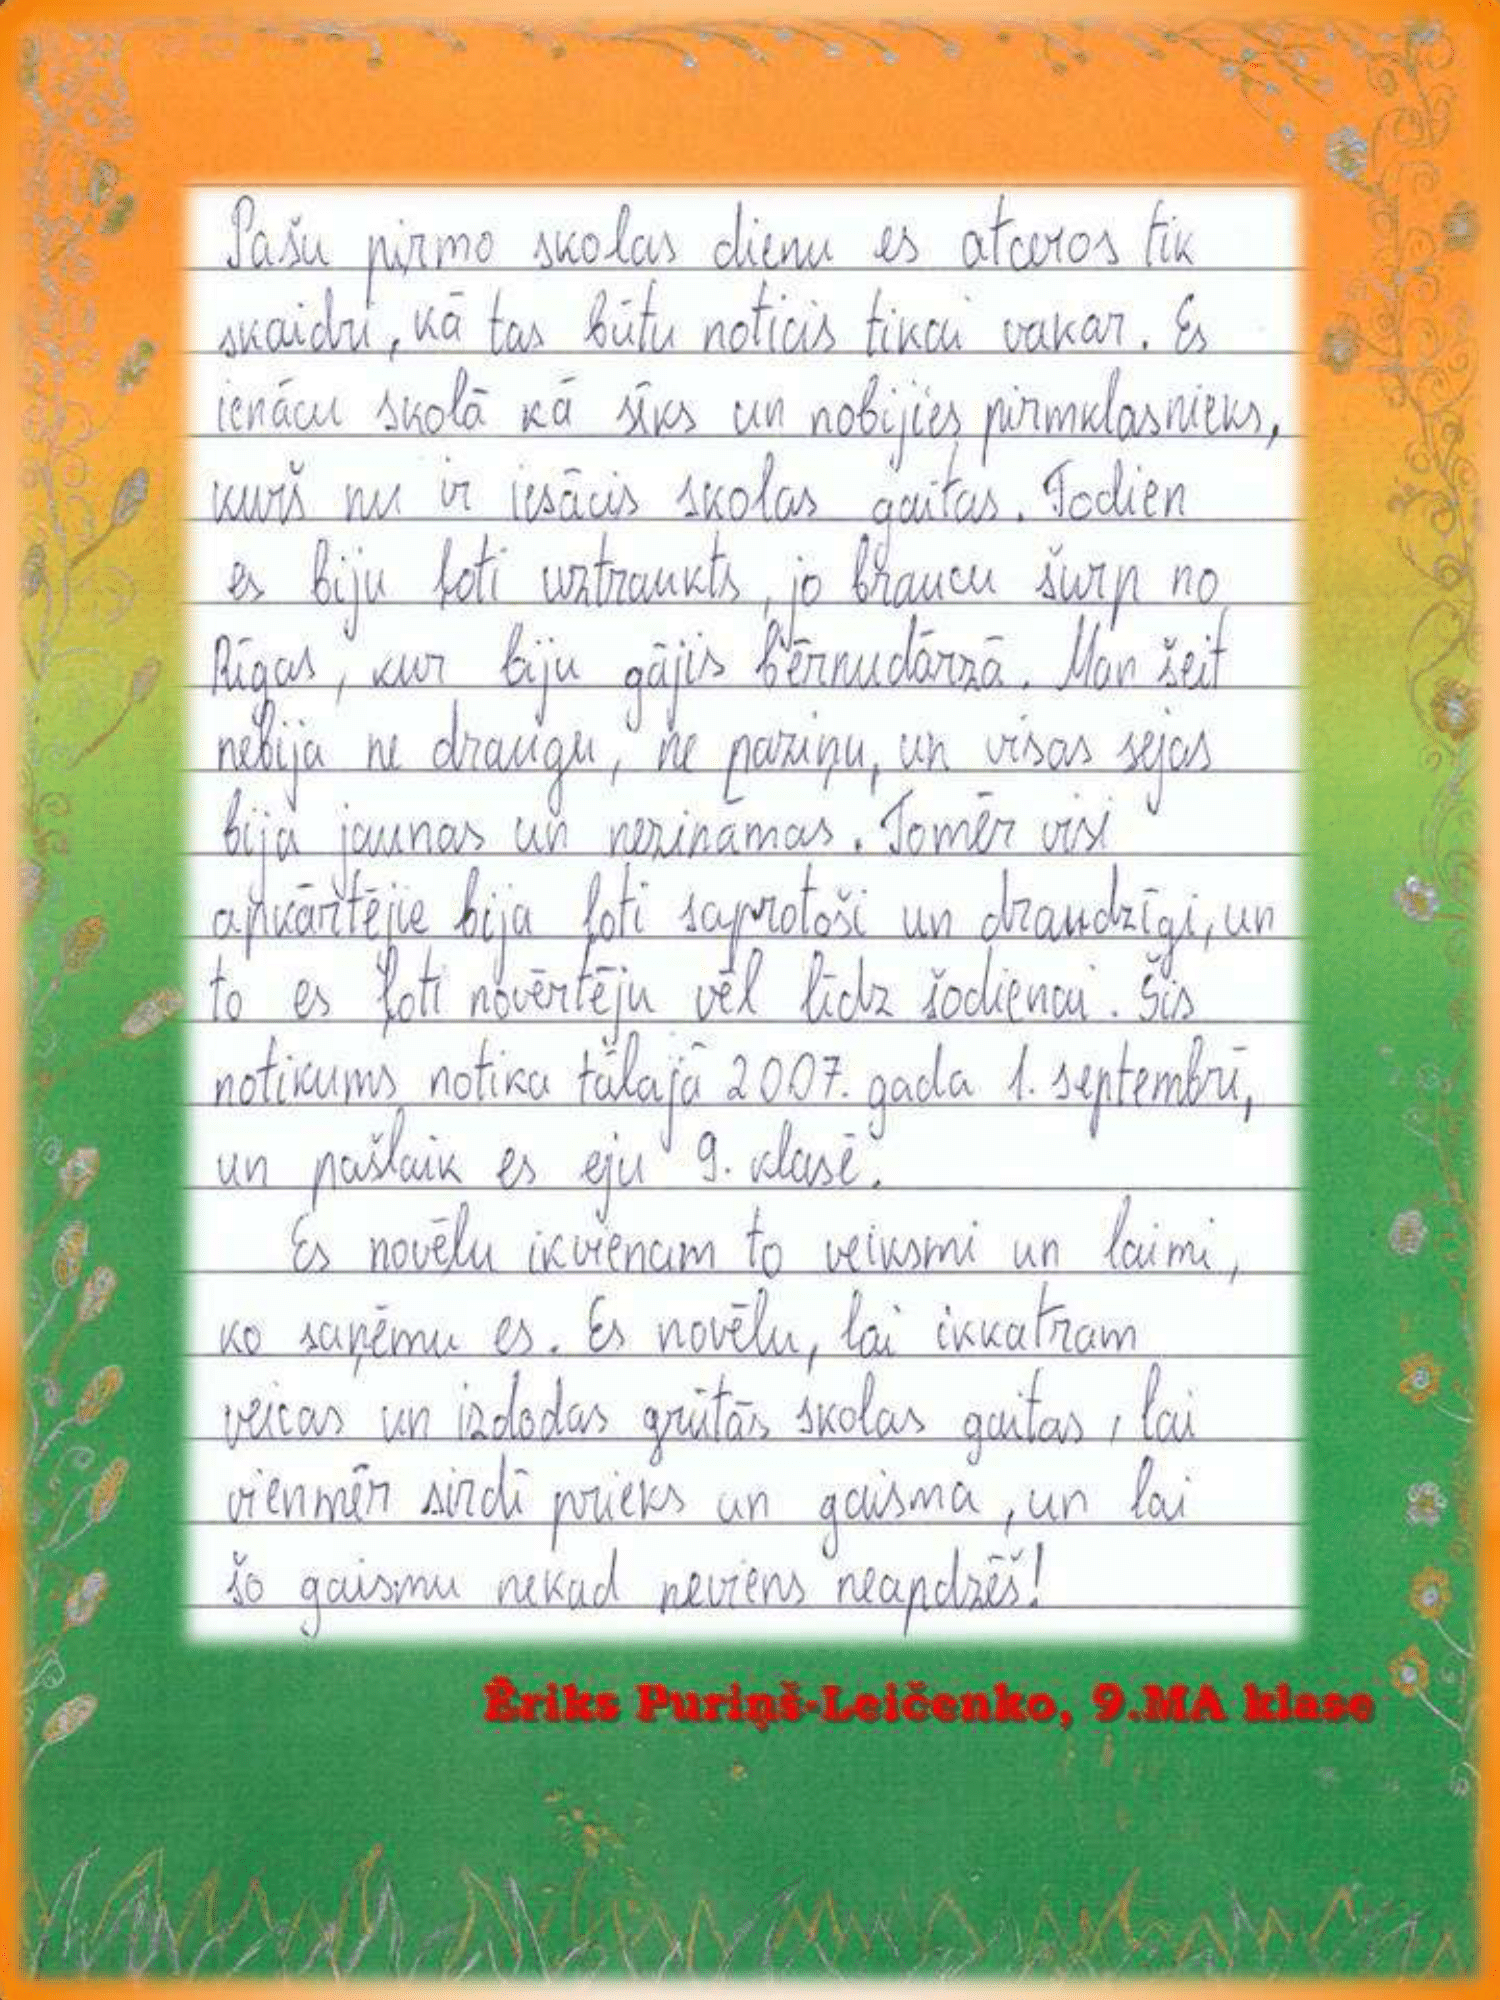 Pašu pirmo skolas dienu es atceros tik
skaidri, kā tas būtu noticis tikai vakar. Es
ienācu skolā kā sīks un nobijies pirmklasnieks,
kurš nu ir iesācis skolas gaitas. Todien
es biju ļoti uztraukts, jo braucu šurp no
Rīgas, kur biju gājis bērnudārzā. Man šeit
nebija ne draugu, ne paziņu, un visas sejas
bija jaunas un nezināmas. Tomēr visi
apkārtējie bija ļoti saprotoši un draudzīgi, un
to es ļoti novērtēju vēl līdz šodienai. Šis
notikums notika tālajā 2007. gada 1. septembrī,
un pašlaik es eju 9. klasē.
Es novēlu ikvienam to veiksmi un laimi,
ko saņēmu es. Es novēlu, lai ikkatram
veicas un izdodas grūtās skolas gaitas, lai
vienmēr sirdī prieks un gaisma, un lai
šo gaismu nekad neviens neapdzēš!
Ēriks Puriņš-Leičenko, 9.MA klase